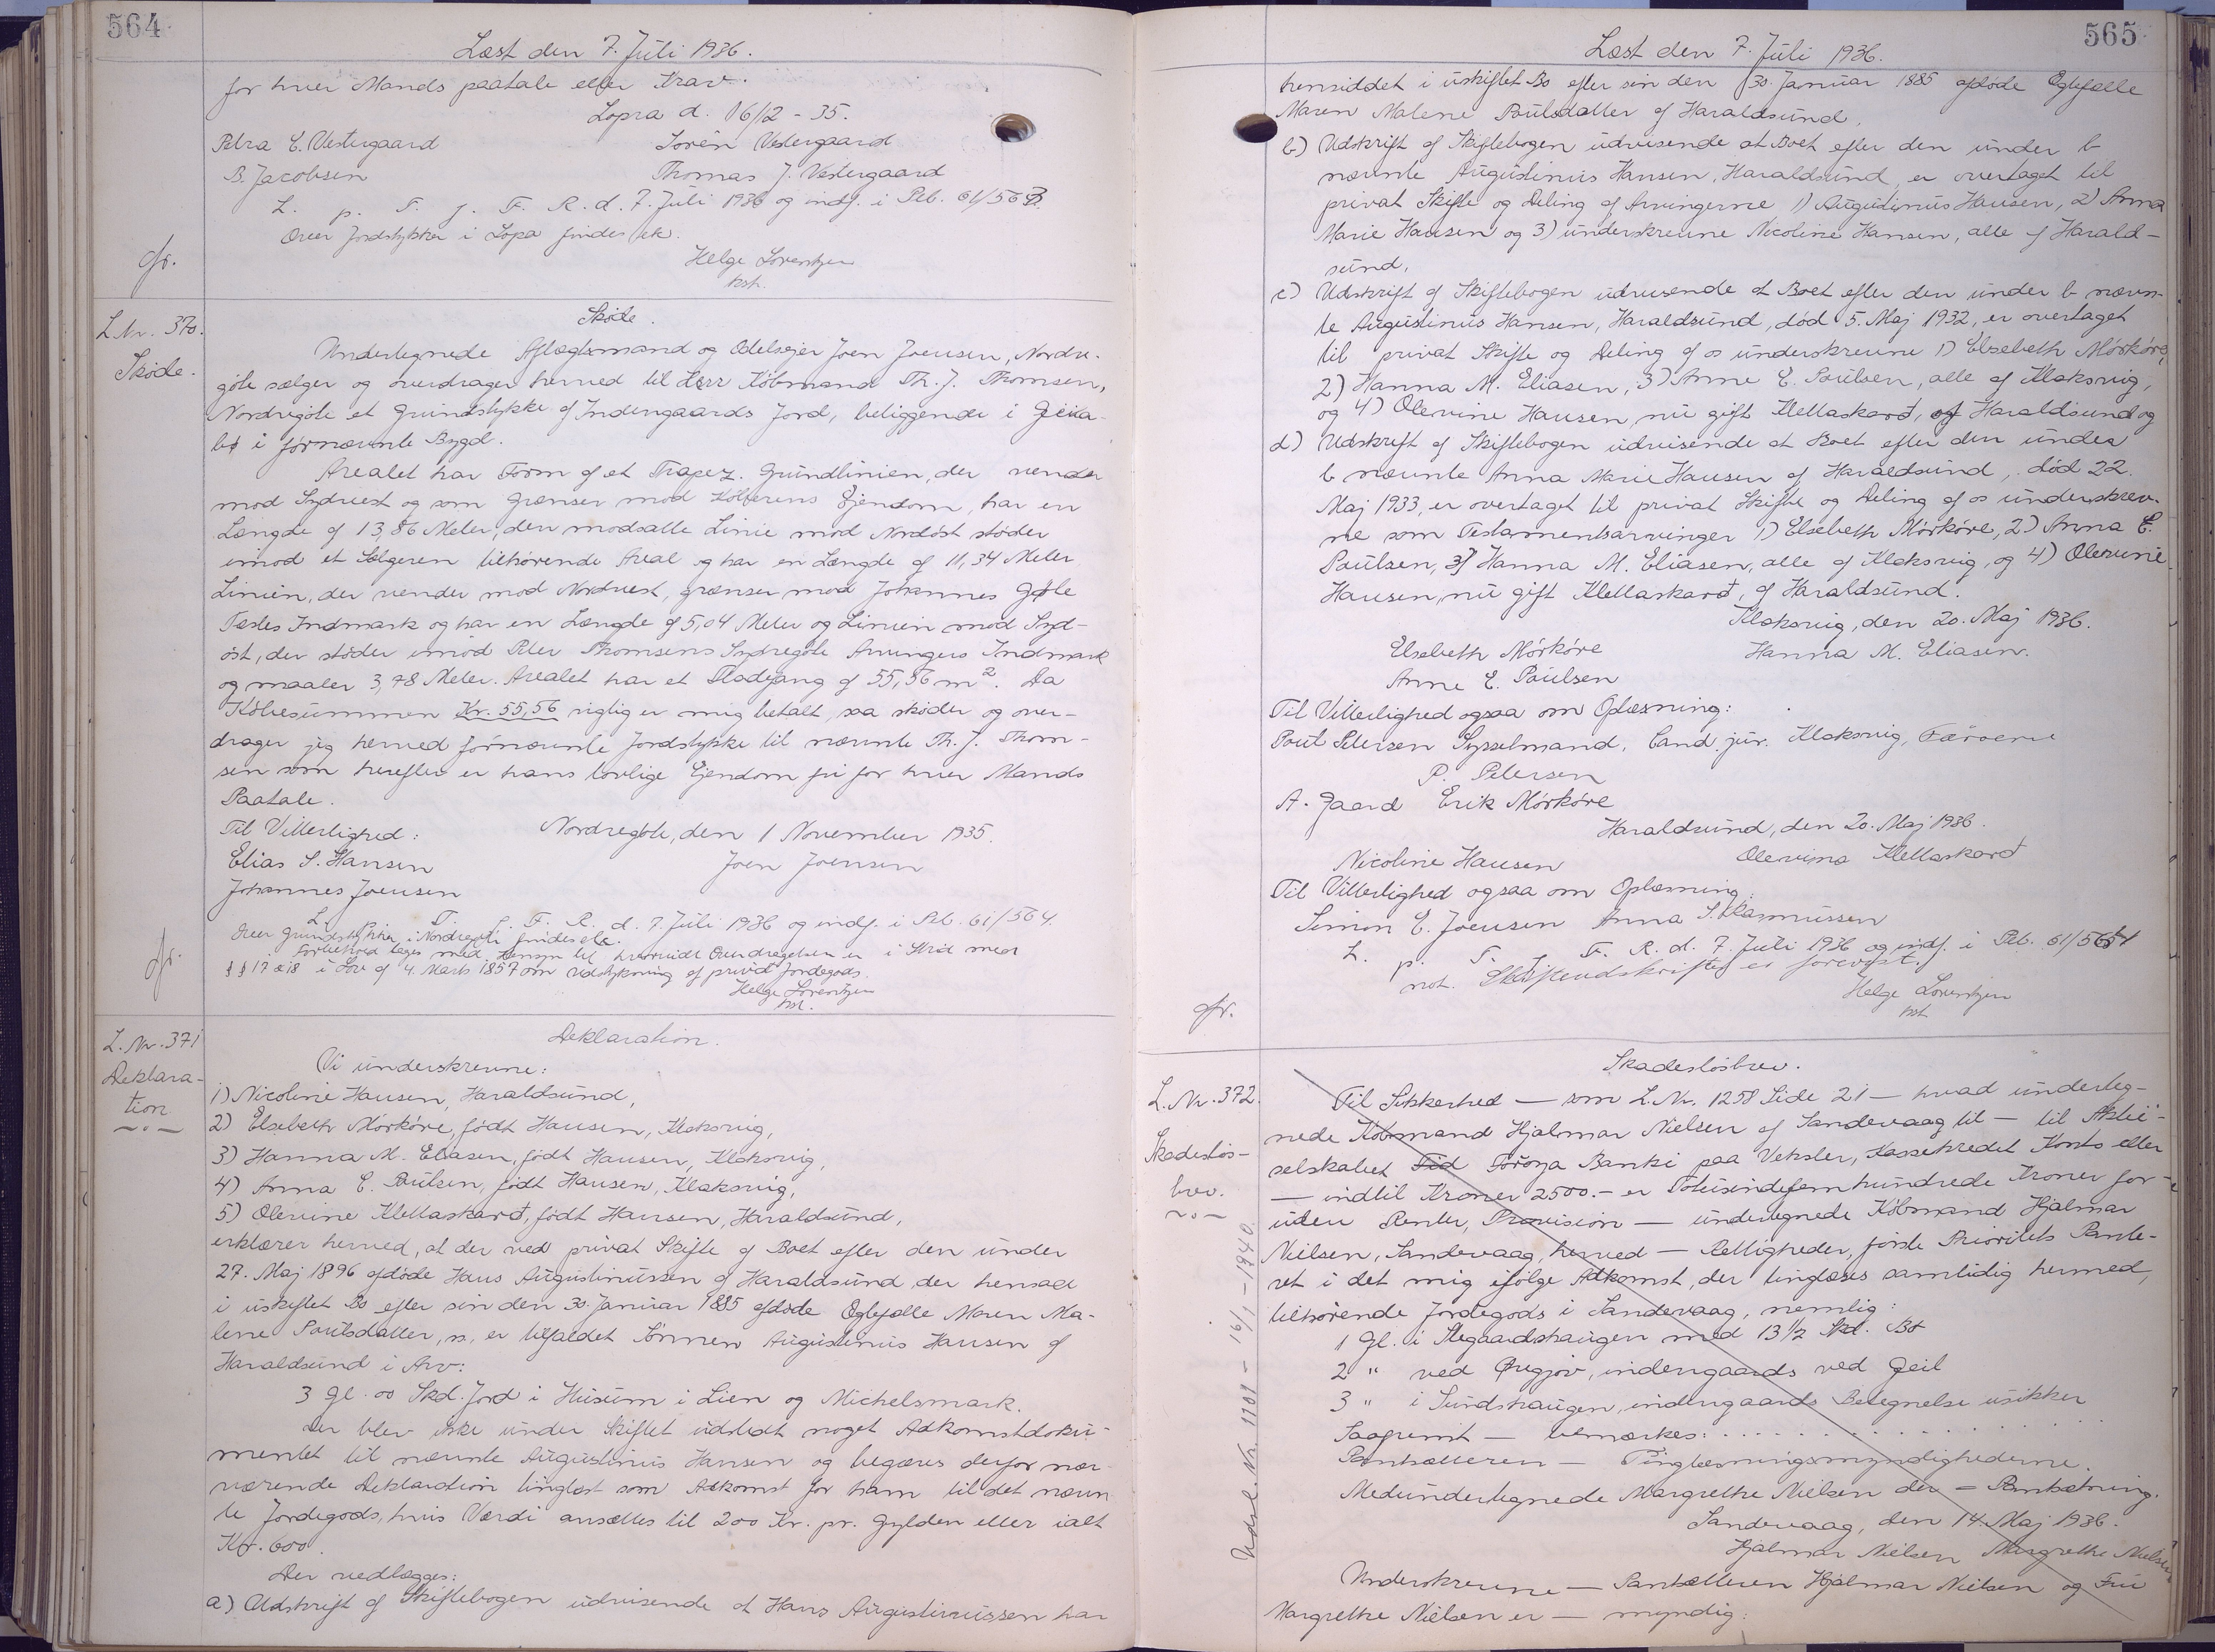 564
Læst den 7. Juli 1936.
for hver Mands paatale eller Krav.
Lopra d. 16/12 - 35.
Petra E. Vestergaard
Sören Vestergaard
B. Jacobsen
Thomas J. Vestergaard
L. p. T. f. F. R. d. 7. Juli 1936 og indf. i Pcb. 61/563.
Over Jordstykker i Lopa findes ek.
Helge Lorentzen
kst.
L. Nr. 370.
Skøde.
Skøde.
Undertegnede Aflægtsmand og Odelsejer Joen Joensen, Nordre-
göte sælger og overdrager herved til Herr Købmand Th. J. Thomsen,
Nordregöte et Grundstykke af Indengaards Jord, beliggende i
i førnævnte Bygd.
Arealet har Form af et Trapez. Grundlinien, der vender
mod Sydvest og som grænser mod Köberens Ejendom, har en
Længde af 13,86 Meter, den modsatte Linie mod Nordöst stöder
imod et Sælgeren tilhörende Areal og har en Længde af 11,34 Meter
Linien, der vender mod Nordvest, grænser mod Johannes Göte
Fæstes Indmark og har en Længde af 5,04 Meter og Linien mod Syd-
öst, der stöder imod Peter Thomsens Sydregöte Arvingers Indmark
og maaler 3,78 Meter. Arealet har et Fladejang af 55,56 m². Da
Købesummen Kr. 55,56 rigtig er mig betalt, saa skøder og over-
drager jeg herved førnævnte Jordstykke til nævnte Th. J. Thom-
sen som herefter er hans lovlige Ejendom fri for hver Mands
Paatale.
Til Vitterlighed:
Nordregöte, den 1 November 1935.
Elias S. Hansen
Joen Joensen
Johannes Joensen
L. T. f. F. R. d. 7. Juli 1936 og indf. i Pcb. 61/564.
Over Grundstykker i Nordregöte findes ek.
Forbehold tages med Hensyn til hvorvidt Overdragelsen er i Strid med
§§ 17 & 18 i Lov af 4. Marts 1857 om Udstykning af privat Jordegods.
Helge Lorentzen
kst.
L. Nr. 371
Deklara-
tion
Deklaration.
Vi underskrevne:
1) Nicoline Hansen, Haraldsund,
2) Elsebeth Mörköre, født Hansen, Klaksvig,
3) Hanna M. Eliasen, født Hansen, Klaksvig,
4) Anna E. Poulsen, født Hansen, Klaksvig,
5) Olevine Klettaskarð, født Hansen, Haraldsund,
erklærer herved, at der ved privat Skifte af Boet efter den under
27. Maj 1896 afdöde Hans Augustinussen af Haraldsund der hensad
i uskiftet Bo efter sin den 30. Januar 1885 afdöde Ægtefælle Maren Ma-
lene Poulsdatter, er tilfaldet Sönnen Augustinus Hansen af
Haraldsund i Arv:
3 Gl. 00 Skd. Jord i Husum i Lien og Michelsmark.
Der blev ikke under Skiftet udstedt noget Adkomstdoku-
mentet til nævnte Augustinus Hansen og begæres derfor nær-
værende Deklaration tinglæst som Adkomst for ham til det nævn
te Jordegods, hvis Værdi ansættes til 200 Kr. pr. Gylden eller ialt
Kr. 600.
Der vedlægges:
a) Udskrift af Skiftebogen udvisende at Hans Augustinussen har
565
Læst den 7. Juli 1936.
hensiddet i uskiftet Bo efter sin den 30. Januar 1885 afdöde Ægtefælle
Maren Malene Poulsdatter af Haraldsund.
b) Udskrift af Skiftebogen udvisende at Boet efter den under b
nævnte Augustinus Hansen, Haraldsund, er overtaget til
privat Skifte og Deling af Arvingerne 1) Augustinus Hansen, 2) Anna
Marie Hansen og 3) underskrevne Nicoline Hansen, alle af Harald-
sund.
c) Udskrift af Skiftebogen udvisende at Boet efter den under b nævn-
te Augustinus Hansen, Haraldsund, död 5. Maj 1932, er overtaget
til privat Skifte og Deling af os underskrevne 1) Elsebeth Mörköre,
2) Hanna M. Eliasen, 3) Anne E. Poulsen, alle af Klaksvig,
og 4) Olevine Hansen, nu gift Klettaskarð, af Haraldsund og
d) Udskrift af Skiftebogen udvisende at Boet efter den under
b nævnte Anna Marie Hansen af Haraldsund, död 22.
Maj 1933, er overtaget til privat Skifte og Deling af os underskrev-
ne som Testamentsarvinger 1) Elsebeth Mörköre, 2) Anna E.
Poulsen, 3) Hanna M. Eliasen, alle af Klaksvig, og 4) Olevine
Hansen, nu gift Klettaskarð, af Haraldsund.
Klaksvig, den 20. Maj 1936.
Elsebeth Mörköre
Hanna M. Eliasen.
Anne E. Poulsen
Til Vitterlighed ogsaa om Oplæsning:
Poul Petersen Sysselmand, Cand. jur. Klaksvig, Færöerne
P. Petersen
A. Gaard Erik Mörköre
Haraldsund, den 20. Maj 1936.
Nicoline Hansen
Olevina Klettaskarð
Til Vitterlighed ogsaa om Oplæsning:
Simon E. Joensen Anna S. Rasmussen
L. p. T. f. F. R. d. 7. Juli 1936 og indf. i Pcb. 61/564
not. Skifteudskrifter er forevist.
Helge Lorentzen
kst
L. Nr. 372.
Skadeslös-
brev.
Skadeslösbrev.
Til Sikkerhed — som L. Nr. 1258 Side 21 — hvad underteg-
nede Købmand Hjalmar Nielsen af Sandevaag til — til Aktie-
selskabet Föroya Banki paa Veksler, Kassekredit Konto eller
— indtil Kroner 2500.- er Totusindefemhundrede Kroner for-
uden Renter, Provision — undertegnede Köbmand Hjalmar
Nielsen, Sandevaag, herved — Rettigheder, förste Prioritets Pante-
ret i det mig ifölge Adkomst, der tinglæses samtidig hermed,
tilhörende Jordegods i Sandevaag, nemlig:
1 Gl. i Stegaardshaugen med 13 1/2 Skd. Bø
2 " ved Ørgjov, indengaards ved Geil
3 " i Sundshaugen, indengaards Betegnelse usikker
Saafremt — bemærkes: . . . . . . . . . . . .
Pantsætteren — Tinglæsningsmyndighederne.
Medundertegnede Margrethe Nielsen der — Pantsætning.
Sandevaag, den 14. Maj 1936.
Hjalmar Nielsen Margrethe Nielsen
Underskrevne — Pantsætteren Hjalmar Nielsen og Fru
Margrethe Nielsen er — myndig:
Udsl. L. Nr. 1101 - 16/1 - 1940.